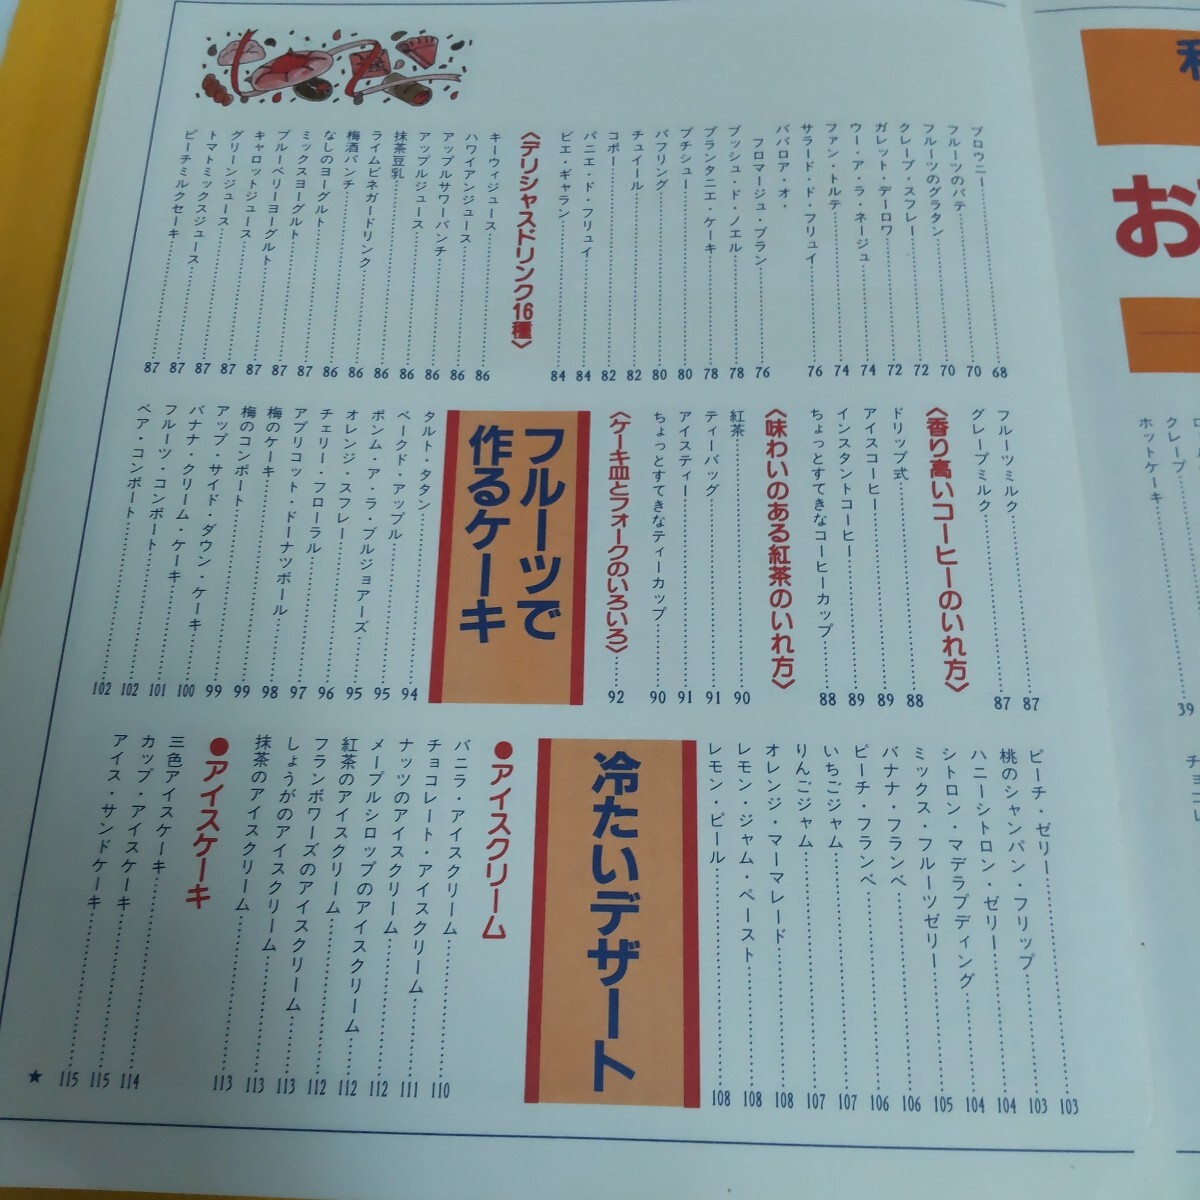 ブロウニー……68
フルーツのパテ……70
フルーツのグラタン……70
クレープ・スフレー……72
ガレット・デーロワ……72
ウー・ア・ラ・ネージュ……74
ファン・トルテ……74
サラード・ド・フリュイ……76
ババロア・オ・
フロマージュ・ブラン……76
ブッシュ・ド・ノエル……78
プランタニエ・ケーキ……78
プチシュー……80
パフリング……80
チュイール……82
コポー……82
パニエ・ド・フリュイ……84
ピエ・ギャラン……84
〈デリシャスドリンク16種〉
キーウィジュース……86
ハワイアンジュース……86
アップルサワーパンチ……86
アップルジュース……86
抹茶豆乳……86
ライムビネガードリンク……86
梅酒パンチ……86
なしのヨーグルト……86
ミックスヨーグルト……87
ブルーベリーヨーグルト……87
キャロットジュース……87
グリーンジュース……87
トマトミックスジュース……87
ピーチミルクセーキ……87
フルーツミルク……87
グレープミルク……87
〈香り高いコーヒーのいれ方〉
ドリップ式……88
アイスコーヒー……89
インスタントコーヒー……89
ちょっとすてきなコーヒーカップ……88
〈味わいのある紅茶のいれ方〉
紅茶……90
ティーバッグ……91
アイスティー……91
ちょっとすてきなティーカップ……90
〈ケーキ皿とフォークのいろいろ〉……92
フルーツで
作るケーキ
タルト・タタン……94
ベークド・アップル……95
ポンム・ア・ラ・ブルジョアーズ……95
オレンジ・スフレー……96
チェリー・フローラル……97
アプリコット・ドーナツボール……98
梅のケーキ……99
梅のコンポート……99
アップ・サイド・ダウン・ケーキ……100
バナナ・クリーム・ケーキ……101
フルーツ・コンポート……102
ペア・コンポート……102
ピーチ・ゼリー……103
桃のシャンパン・フリップ……103
ハニーシトロン・ゼリー……104
シトロン・マデラプディング……104
ミックス・フルーツゼリー……105
バナナ・フランベ……106
ピーチ・フランベ……106
いちごジャム……107
りんごジャム……107
オレンジ・マーマレード……108
レモン・ジャム・ペースト……108
レモン・ピール……108
冷たいデザート
●アイスクリーム
バニラ・アイスクリーム……110
チョコレート・アイスクリーム……111
ナッツのアイスクリーム……112
メープルシロップのアイスクリーム……112
紅茶のアイスクリーム……112
フランボワーズのアイスクリーム……113
しょうがのアイスクリーム……113
抹茶のアイスクリーム……113
●アイスケーキ
三色アイスケーキ……114
カップ・アイスケーキ……115
アイス・サンドケーキ……115
★
お
クレープ
ホットケーキ……39